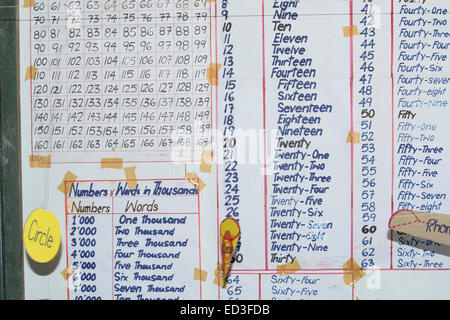 60 61 62 63 64 65 66 67 68 69
70 71 72 73 74 75 76 77 78 79
80 81 82 83 84 85 86 87 88 89
90 91 92 93 94 95 96 97 98 99
100 101 102 103 104 105 106 107 108 109
110 111 112 113 114 115 116 117 118 119
120 121 122 123 124 125 126 127 128 129
130 131 132 133 134 135 136 137 138 139
140 141 142 143 144 145 146 147 148 149
150 151 152 153 154 155 156 157 158 159
160 161 162 163 164 165 166 167 168 169
Numbers & Words in Thousands
Numbers Words
1'000 One Thousand
2'000 Two Thousand
3'000 Three Thousand
4'000 Four Thousand
5'000 Five Thousand
6'000 Six Thousand
7'000 Seven Thousand
10'000 Ten Thousand
Circle
8 Eight
9 Nine
10 Ten
11 Eleven
12 Twelve
13 Thirteen
14 Fourteen
15 Fifteen
16 Sixteen
17 Seventeen
18 Eighteen
19 Nineteen
20 Twenty
21 Twenty-One
22 Twenty-Two
23 Twenty-Three
24 Twenty-Four
25 Twenty-Five
26 Twenty-Six
Twenty-Seven
Twenty-eight
Twenty-Nine
Thirty
64 Sixty-Four
65 Sixty-Five
41 Fourty-One
42 Fourty-Two
43 Fourty-Three
44 Fourty-Four
45 Fourty-Five
46 Fourty-Six
47 Fourty-Seven
48 Fourty-eight
49 Fourty-Nine
50 Fifty
51 Fifty-One
52 Fifty-Two
53 Fifty-Three
54 Fifty-Four
55 Fifty-Five
56 Fifty-Six
57 Fifty-Seven
58 Fifty-eight
59
60
61
62 Sixty-Two
63 Sixty-Three
Rhom
alamy
Image ID: ED3FDB
www.alamy.com